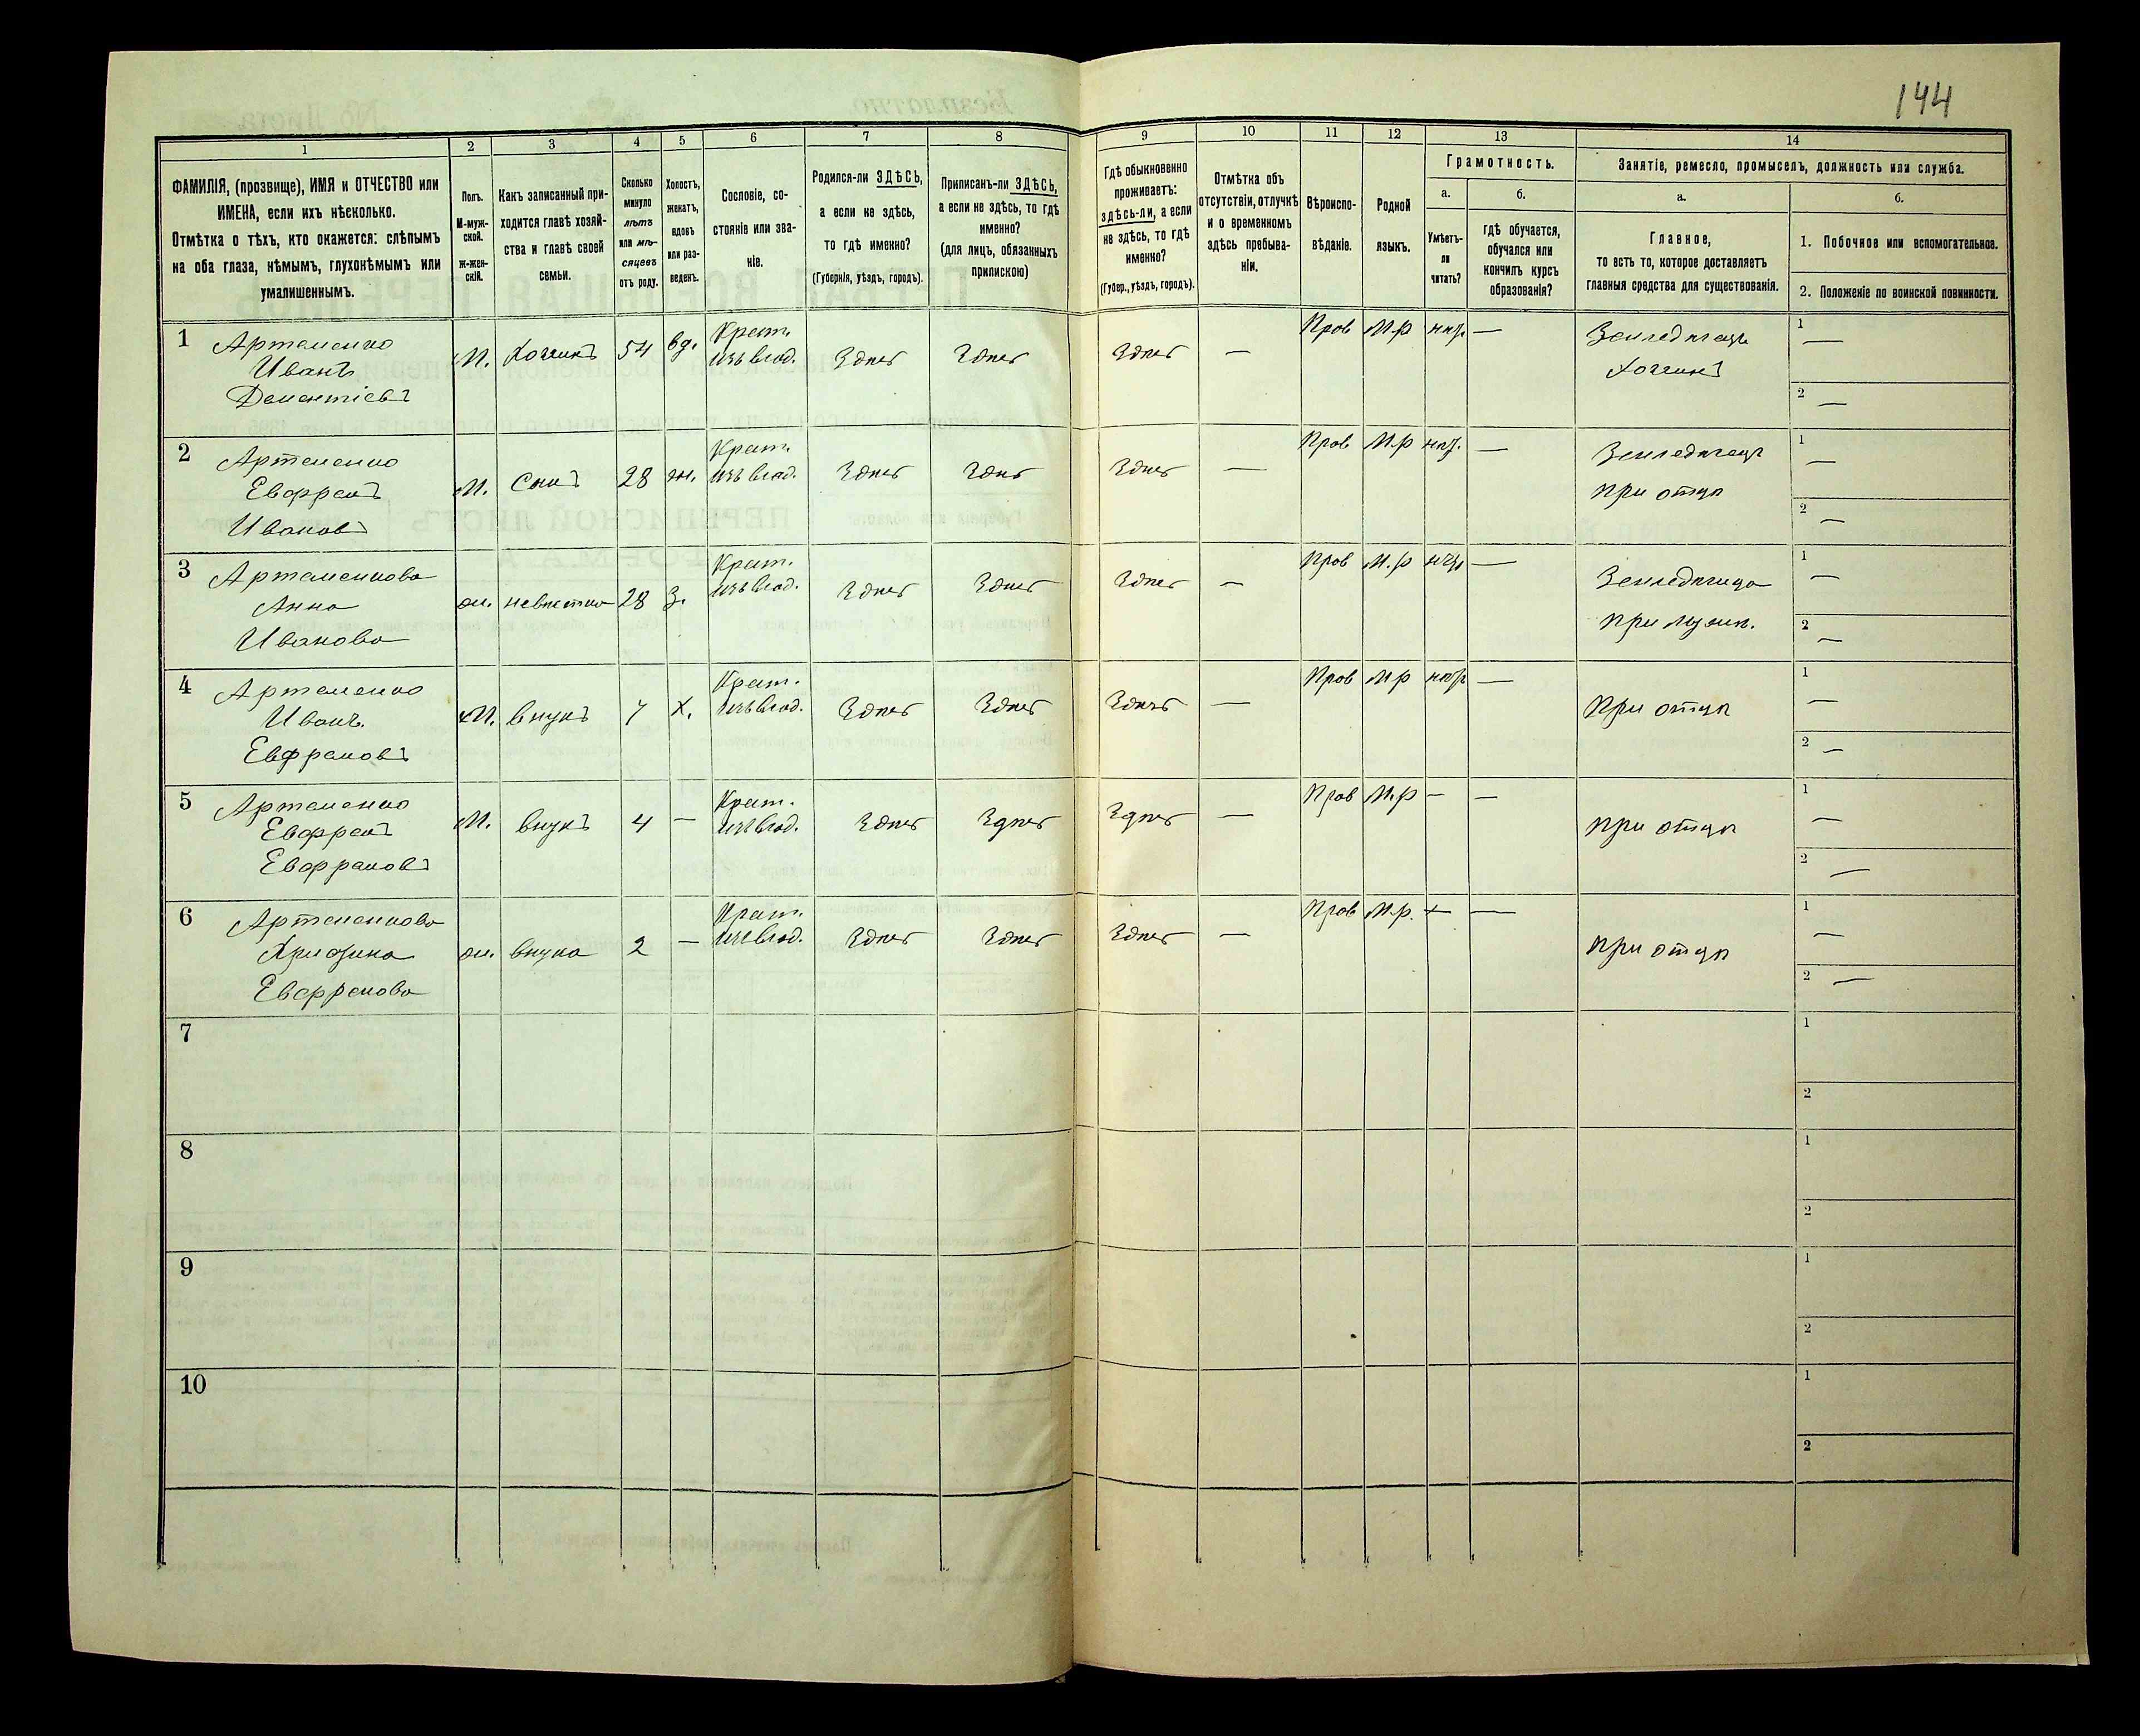 144
1
2
3
4
5
6
7
8
9
10
11
12
13
14
ФАМИЛІЯ, (прозвище), ИМЯ и ОТЧЕСТВО или
ИМЕНА, если ихъ нѣсколько.
Отмѣтка о тѣхъ, кто окажется: слѣпымъ
на оба глаза, нѣмымъ, глухонѣмымъ или
умалишеннымъ.
Полъ.
М-муж-
ской.
ж-жен-
скій.
Какъ записанный при-
ходится главѣ хозяй-
ства и главѣ своей
семьи.
Сколько
минуло
лѣтъ
или мѣ-
сяцевъ
отъ роду.
Холостъ,
женатъ,
вдовъ
или раз-
веденъ.
Сословіе, со-
стояніе или зва-
ніе.
Родился-ли ЗДѢСЬ,
а если не здѣсь,
то гдѣ именно?
(Губернія, уѣздъ, городъ).
Приписанъ-ли ЗДѢСЬ,
а если не здѣсь, то гдѣ
именно?
(для лицъ, обязанныхъ
припискою)
Гдѣ обыкновенно
проживаетъ:
здѣсь-ли, а если
не здѣсь, то гдѣ
именно?
(Губер., уѣздъ, городъ).
Отмѣтка объ
отсутствіи, отлучкѣ
и о временномъ
здѣсь пребыва-
ніи.
Вѣроиспо-
вѣданіе.
Родной
языкъ.
Грамотность.
а.
Умѣетъ-
ли
читать?
б.
гдѣ обучается,
обучался или
кончилъ курсъ
образованія?
Занятіе, ремесло, промыселъ, должность или служба.
а.
Главное,
то есть то, которое доставляетъ
главныя средства для существованія.
б.
1. Побочное или вспомогательное.
2. Положеніе по воинской повинности.
1 Артеменко
Иванъ
Дементіевъ
М. Хозяинъ 54 вд. Крест. изъ влад. Здѣсь Здѣсь Здѣсь — Пров М.р нѣт —
Земледѣлецъ
Хозяинъ
1 —
2 —
2 Артеменко
Евфремъ
Ивановъ
М. Сынъ 28 ж. Крест. изъ влад. Здѣсь Здѣсь Здѣсь — Пров М.р нѣт. —
Земледѣлецъ
при отцѣ
1 —
2 —
3 Артеменкова
Анна
Иванова
ж. невѣстка 28 з. Крест. изъ влад. Здѣсь Здѣсь Здѣсь — Пров М.р нѣт —
Земледѣлица
при мужѣ.
1 —
2 —
4 Артеменко
Иванъ
Евфремовъ
М. внукъ 7 х. Крест. изъ влад. Здѣсь Здѣсь Здѣсь — Пров М.р нѣт —
При отцѣ
1 —
2 —
5 Артеменко
Евфремъ
Евфремовъ
М. внукъ 4 — Крест. изъ влад. Здѣсь Здѣсь Здѣсь — Пров М.р — —
при отцѣ
1 —
2 —
6 Артеменкова
Евфремова
ж. внука 2 — Крест. изъ влад. Здѣсь Здѣсь Здѣсь — Пров М.р. — —
при отцѣ
1 —
2 —
7
1
2
8
1
2
9
1
2
10
1
2